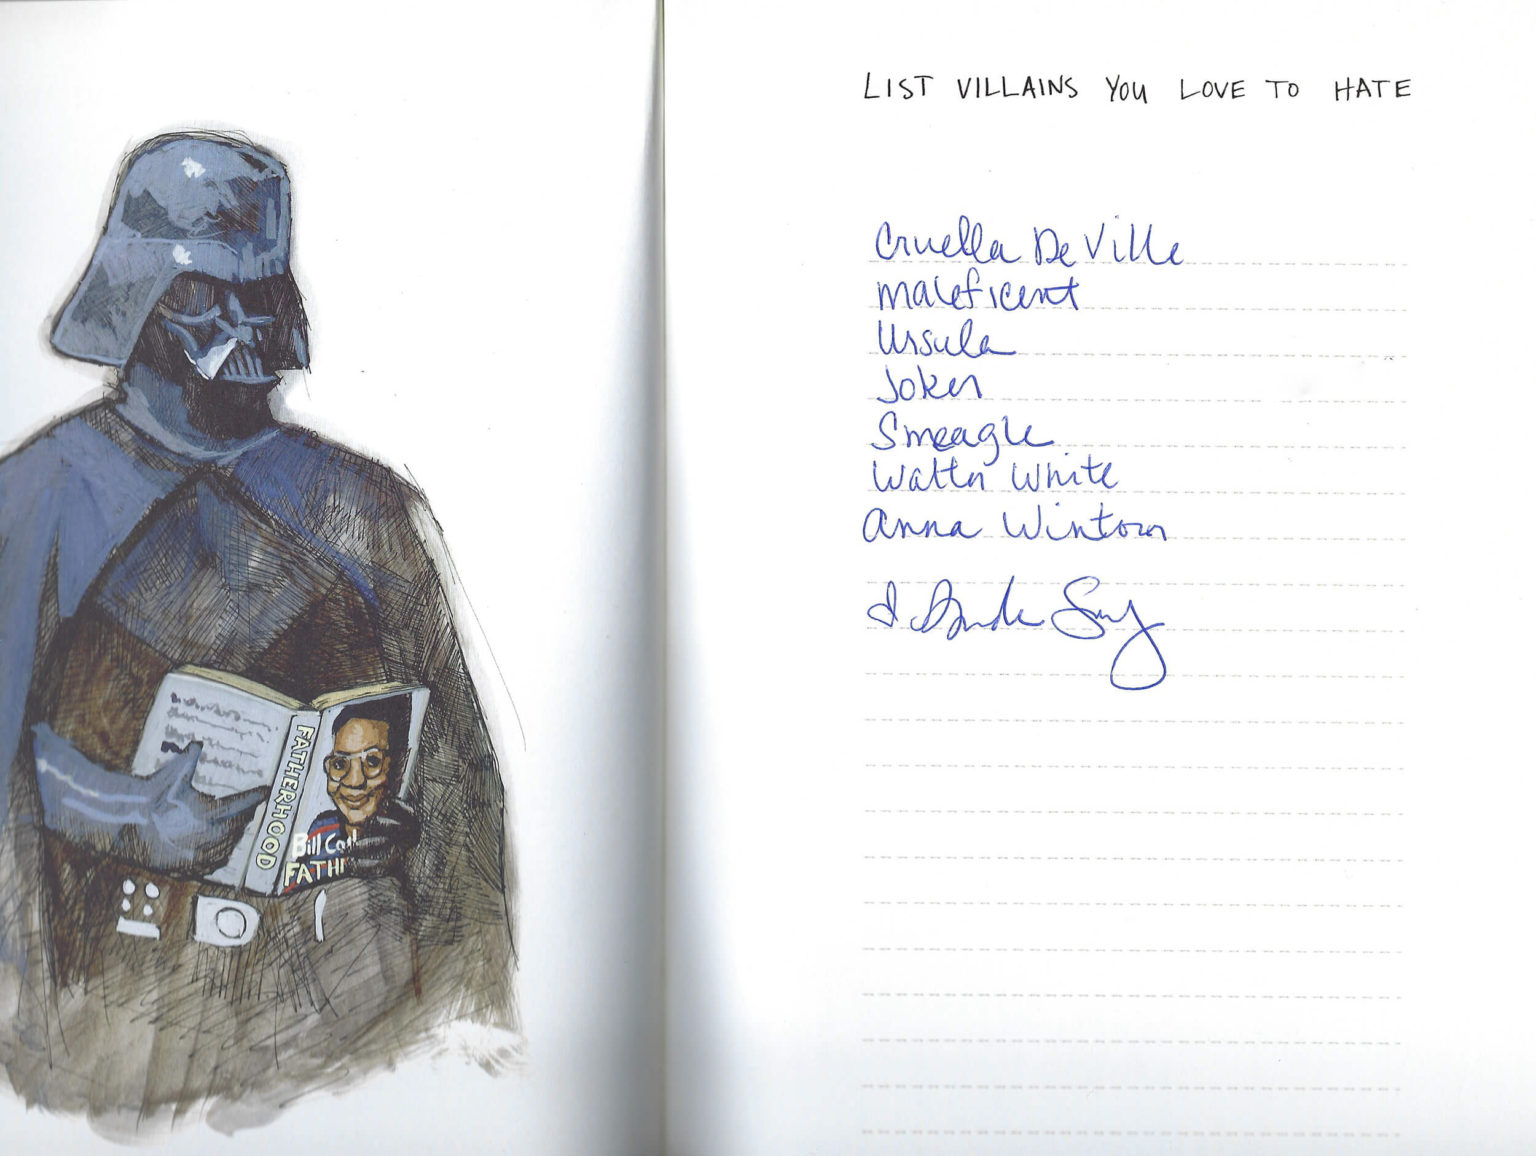 LIST VILLAINS YOU LOVE TO HATE
Cruella De Ville
Maleficent
Ursula
Joker
Smeagle
Walter White
Anna Wintour
FATHERHOOD
Bill Co
FATH